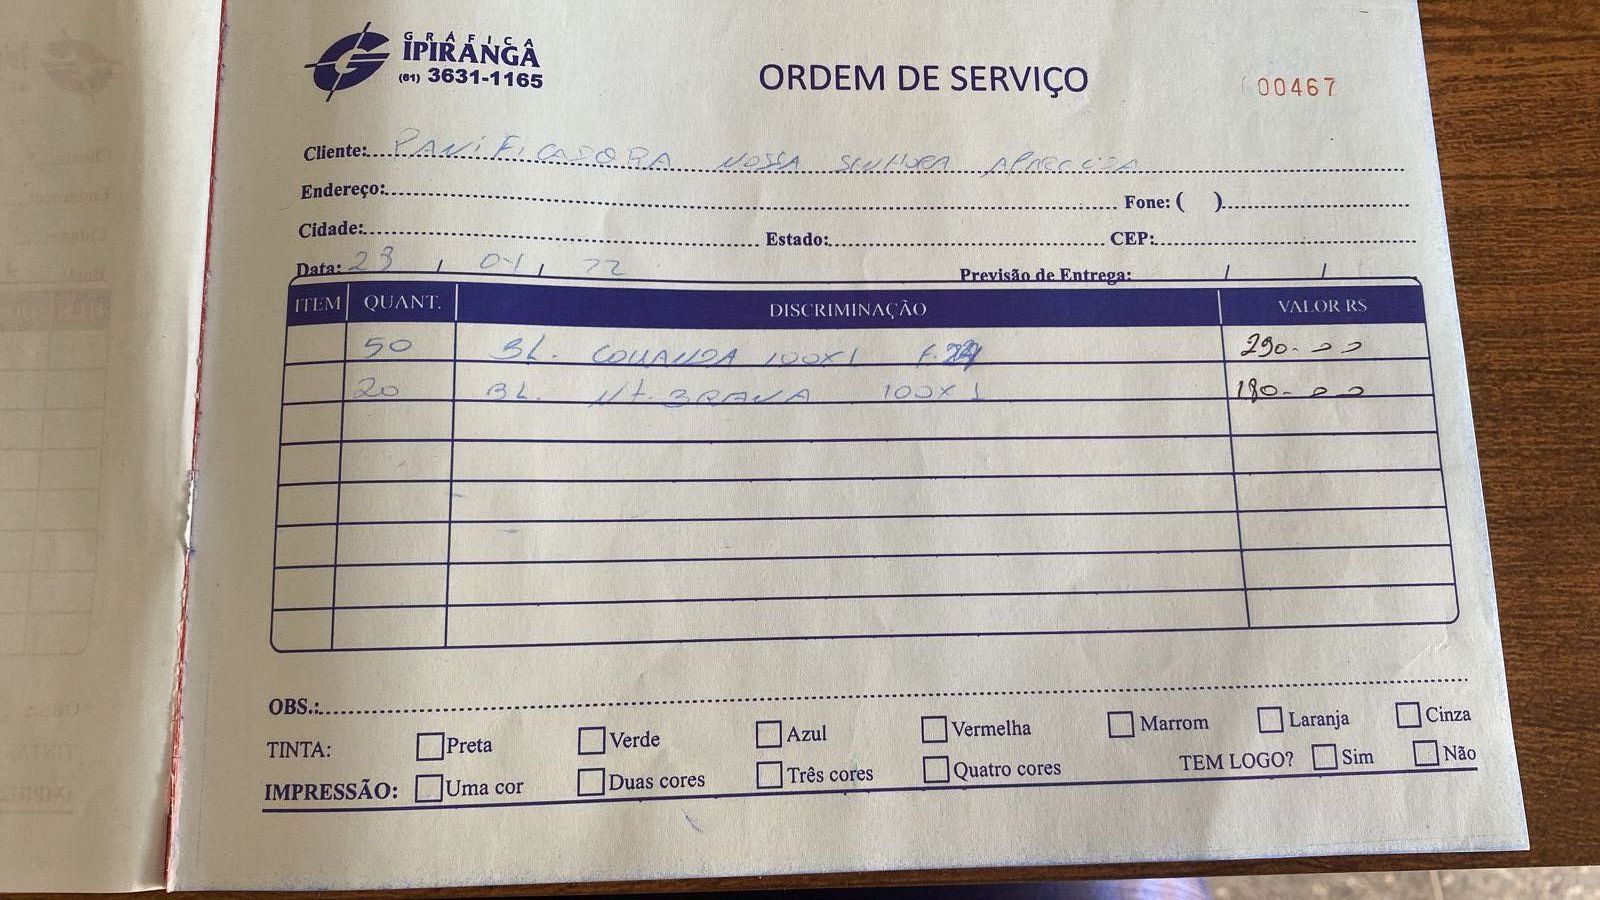 GRÁFICA
IPIRANGA
(61) 3631-1165
ORDEM DE SERVIÇO
00467
Cliente: PANIFICADORA NOSSA SINHORA APARECIDA
Endereço: Fone: ( )
Cidade: Estado: CEP:
Data: 23 / 01 / 22 Previsão de Entrega: / /
ITEM QUANT. DISCRIMINAÇÃO VALOR R$
50 BL. COMANDA 100X1 290-00
20 BL. 100X1 180-00
OBS.:
TINTA: Preta Verde Azul Vermelha Marrom Laranja Cinza
IMPRESSÃO: Uma cor Duas cores Três cores Quatro cores TEM LOGO? Sim Não